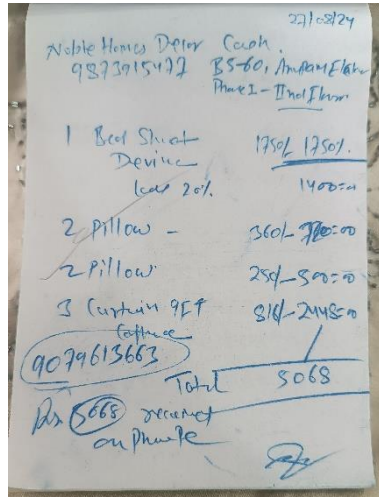 27/08/24
Noble Homes Decor Cash.
9873915477 BS-60, Anupam
Phase I - IInd Floor
1 Bed Sheet 1750/- 1750/-
Devine
less 20% 1400=00
2 Pillow - 360/- 720=00
2 Pillow 250/- 500=00
3 Curtain 9Ft 816/- 2448=00
9079613663
Total 5068
Rs 5068 received
on PhonePe